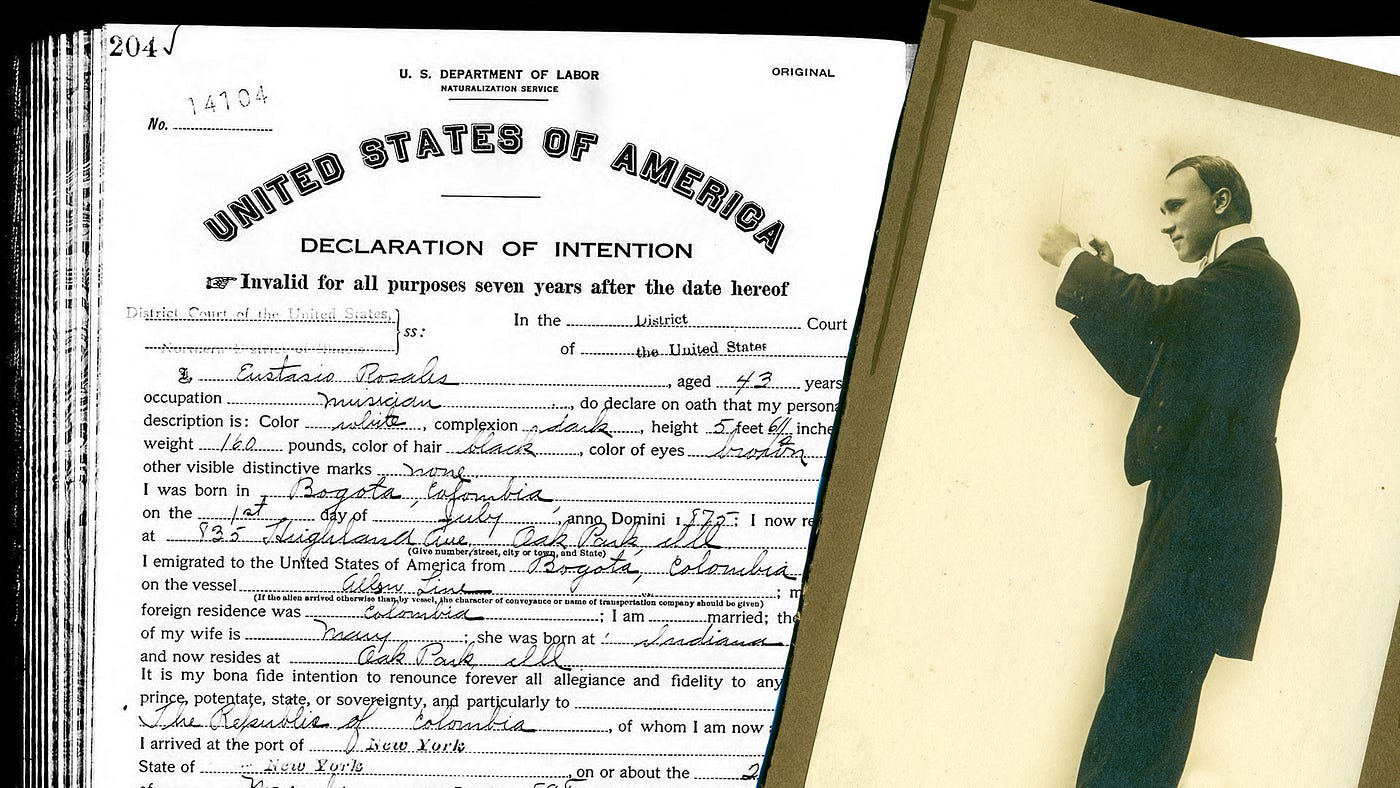 204✓
U. S. DEPARTMENT OF LABOR
NATURALIZATION SERVICE
ORIGINAL
No. 14104
UNITED STATES OF AMERICA
DECLARATION OF INTENTION
☞ Invalid for all purposes seven years after the date hereof
District Court of the United States,
Northern District of Illinois
ss:
In the District Court
of the United States
I, Eustasio Rosales, aged 43 years
occupation musician, do declare on oath that my persona
description is: Color white, complexion dark, height 5 feet 6½ inche
weight 160 pounds, color of hair black, color of eyes brown
other visible distinctive marks none
I was born in Bogota, Colombia
on the 1st day of July, anno Domini 1875; I now re
at 835 Highland Ave. Oak Park, Ill
(Give number, street, city or town, and State)
I emigrated to the United States of America from Bogota, Colombia
on the vessel Line; m
(If the alien arrived otherwise than by vessel, the character of conveyance or name of transportation company should be given)
foreign residence was Colombia; I am married; the
of my wife is Mary; she was born at Indiana
and now resides at Oak Park, Ill
It is my bona fide intention to renounce forever all allegiance and fidelity to any
prince, potentate, state, or sovereignty, and particularly to
The Republic of Colombia, of whom I am now
I arrived at the port of New York
State of New York, on or about the 2